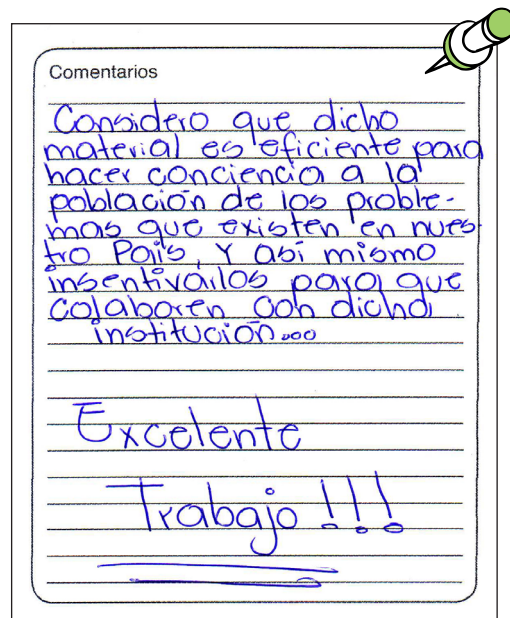 Comentarios
Considero que dicho
material es eficiente para
hacer conciencia a la
población de los proble-
mas que existen en nues-
tro País, Y así mismo
insentivarlos para que
colaboren con dicha
institución...
Excelente
Trabajo!!!